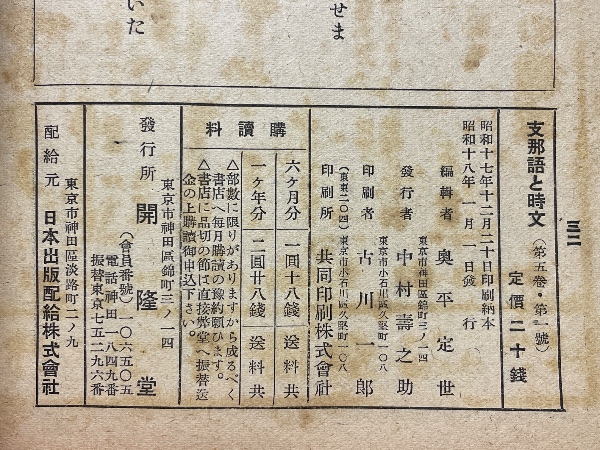 せま
いた
三二
支那語と時文
(第五卷・第一號)
定價二十錢
昭和十七年十二月二十日印刷納本
昭和十八年一月一日發行
編輯者 奥平定世
東京市神田區錦町三ノ一四
發行者 中村壽之助
東京市小石川區久堅町一〇八
印刷者 古川一郎
(東東二〇四)東京市小石川區久堅町一〇八
印刷所 共同印刷株式會社
購讀料
六ケ月分 一圓十八錢 送料共
一ケ年分 二圓廿八錢 送料共
△部數に限りがありますから成るべく
書店へ毎月購讀の豫約願ひます。
△書店に品切の節は直接弊堂へ振替送
金の上購讀御申込下さい。
東京市神田區錦町三ノ一四
發行所 開隆堂
(會員番號)一〇六五〇五
電話神田一八四九番
振替東京七五二九六番
東京市神田區淡路町二ノ九
配給元 日本出版配給株式會社